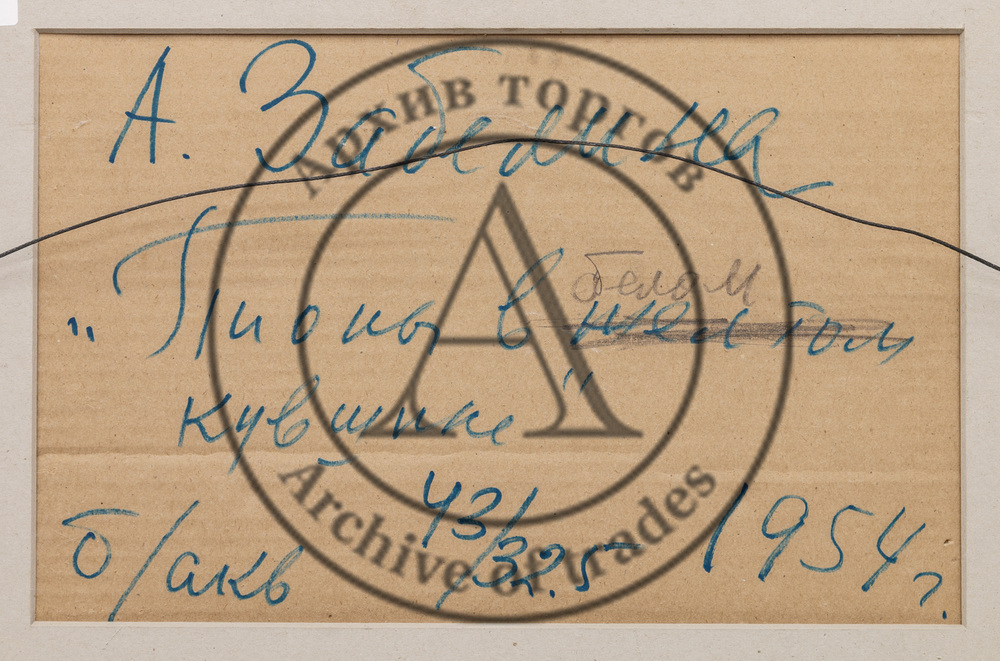 А. Забелина
белом
„Пионы в желтом
кувшине"
б/акв 43/32.5 1954 г.
Архив торгов
Archive of trades